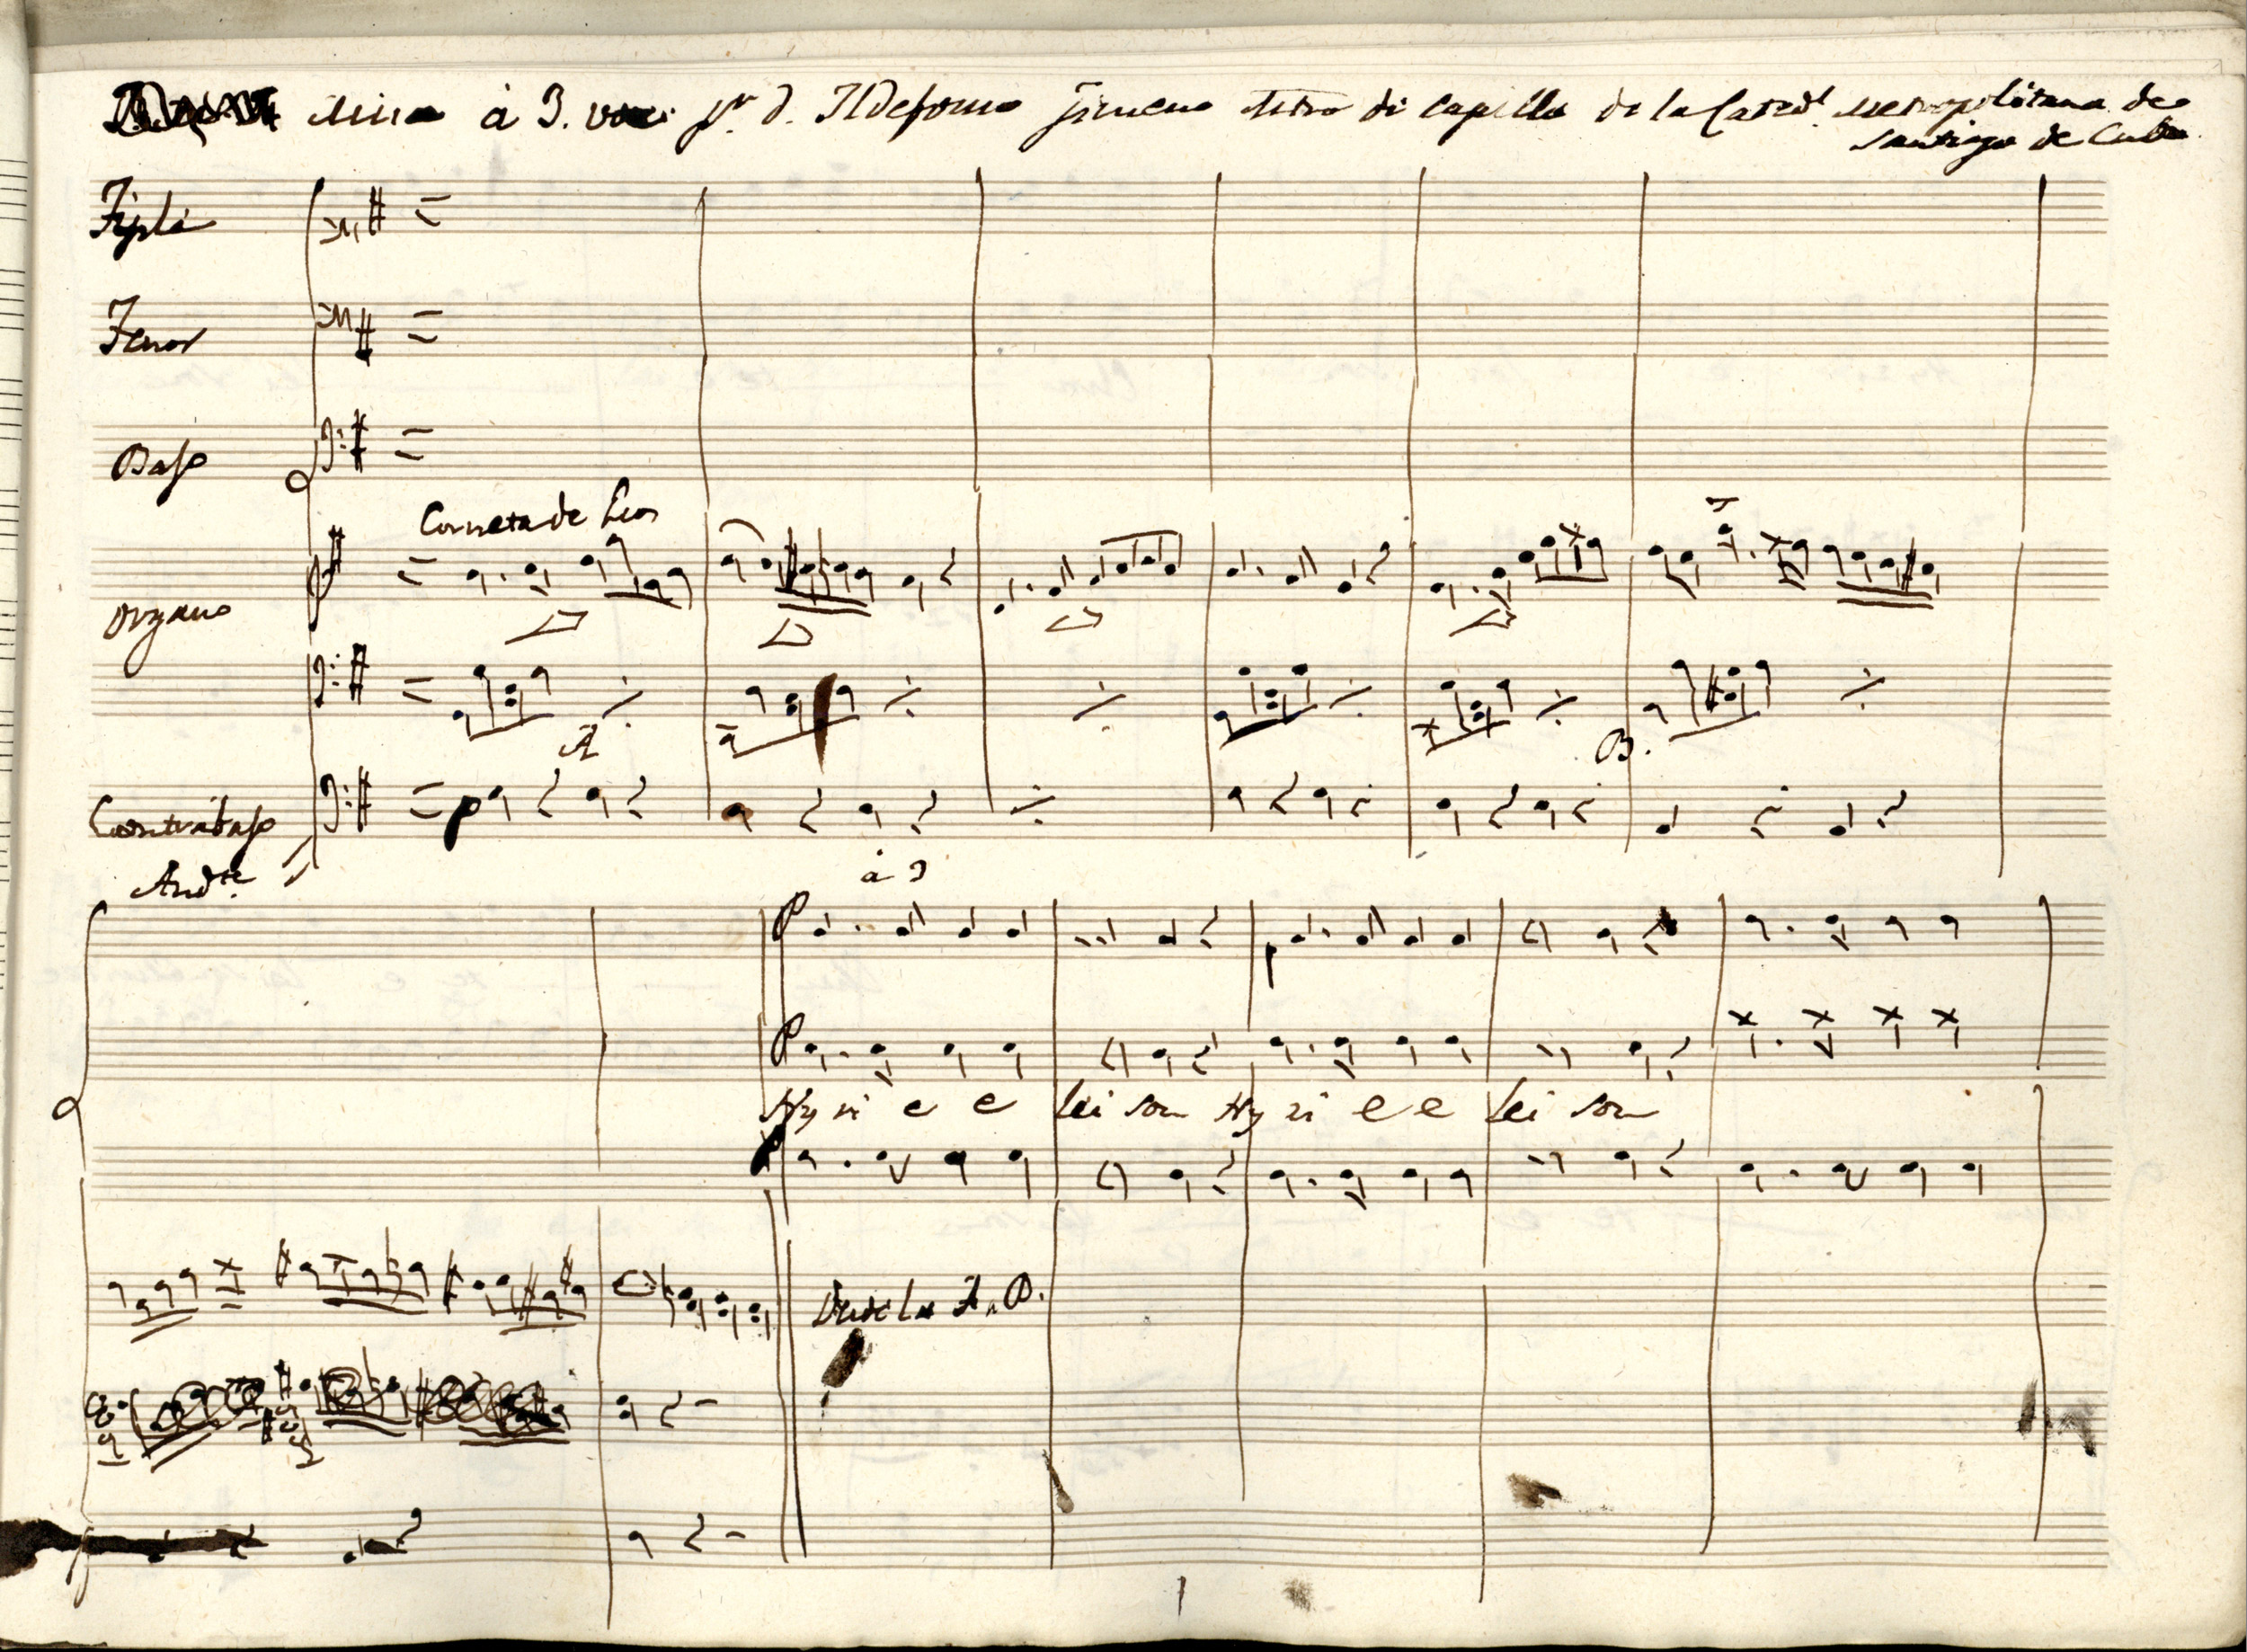 Misa à 3. voces pr. d. Ildefonso Jimeno Mtro di capilla de la Catedl. Metropolitana de
Santiago de Cuba
Tiple
Tenor
Bajo
Corneta de Eco
organo
A
B.
Contrabajo
Andte.
à 3
P P
P
Ky ri e e lei son Ky ri e e lei son
Desde la A. B.